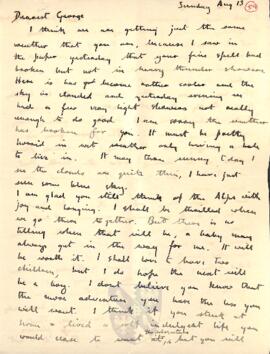 Sunday Aug 13
Dearest George
I think we are getting just the same
weather that you are, because I saw in
the paper yesterday that your fine spell had
broken but not in heavy thunder showers
Here it has got become rather cooler and the
sky is clouded and yesterday evening we
had a few very light showers not really
enough to do good. I am sorry the weather
has broken for you. It must be pretty
horrid in wet weather only having a hole
to live in. It may turn sunny today
as the clouds are quite thin, I have just
seen some blue sky.
I am glad you still think of the Alps with
joy and longing. I shall be thrilled when
we go there together. But there is no
telling when that will be, a baby may
always get in the way for me. It will
be worth it. I shall love to have two
children, but I do hope the next will
be a boy. I don't believe you know that
the more adventure you have the less you
will want. I think if you stuck at
home & lived a indulgent life you
would cease to want but you will